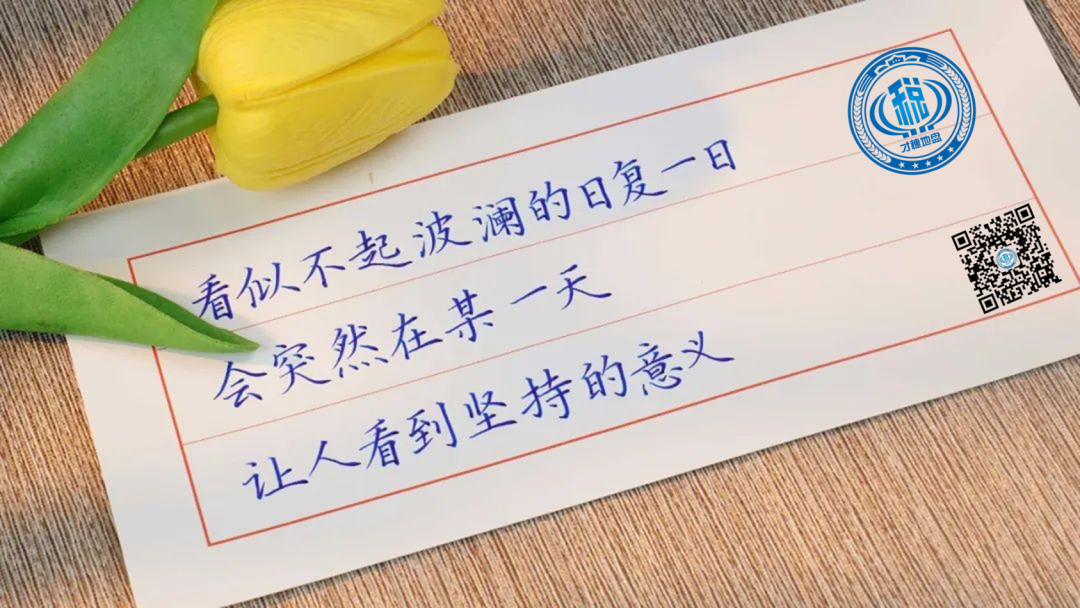 看似不起波澜的日复一日
会突然在某一天
让人看到坚持的意义
税
才穗地盘